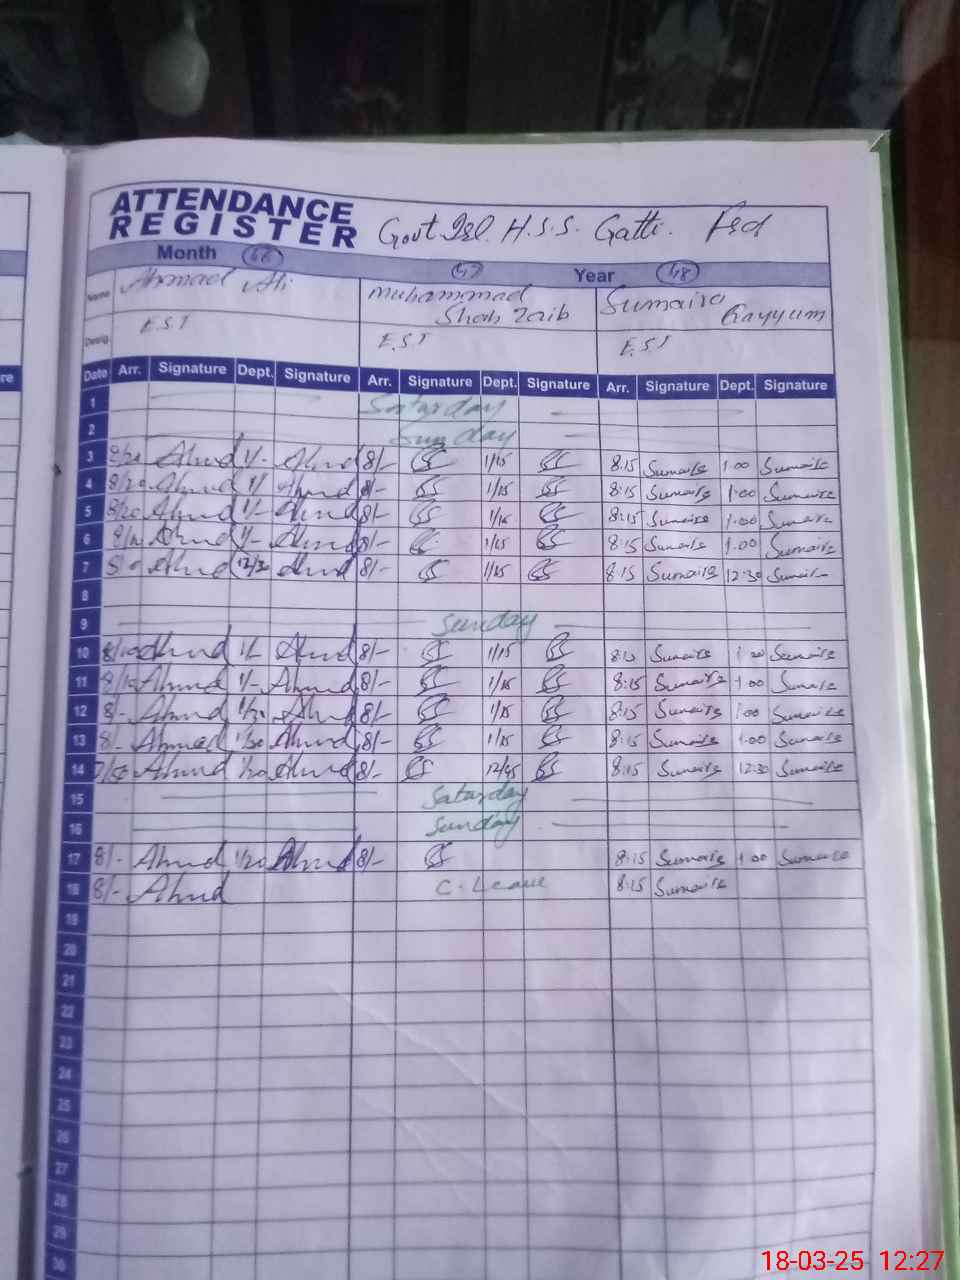 ATTENDANCE
REGISTER Govt H.S.S. Gatti. Fsd
Month 46 47 Year 48
Name Ahmad Ali Muhammad Shah Zaib Sumaira Qayyum
Desig. E.S.T E.S.T E.S.T
re
Date Arr. Signature Dept. Signature Arr. Signature Dept. Signature Arr. Signature Dept. Signature
1 Saturday
2 Sunday
3 Ahmd 1/- Ahmd 8/- 1/15 8:15 Sumaira 1.00 Sumaira
4 8/20 Ahmd 1/ Ahmd 8/- 1/15 8:15 Sumaira 1.00 Sumaira
5 8/20 Ahmd 1/- Ahmd 8/- 8:15 Sumaira 1.00 Sumaira
6 Ahmd 1/- Ahmd 8/- 1/15 8:15 Sumaira 1.00 Sumaira
7 Ahmd 12/30 Ahmd 8/- 1/15 8:15 Sumaira 12:30 Sumaira
8
9 Sunday
10 8/10 Ahmd 1/- Ahmd 8/- 1/15 8:15 Sumaira Sumaira
11 8/10 Ahmd 1/- Ahmd 8/- 1/15 8:15 Sumaira 1.00 Sumaira
12 8/- Ahmd Ahmd 8/- 1/15 8:15 Sumaira 1.00 Sumaira
13 8/- Ahmad 1/30 Ahmd 8/- 1/15 8:15 Sumaira 1.00 Sumaira
14 7/50 Ahmd 1/20 Ahmd 8/- 12/45 8:15 Sumaira 12:30 Sumaira
15 Saturday
16 Sunday
17 8/- Ahmd 1/20 Ahmd 8/- 8:15 Sumaira 1.00 Sumaira
18 8/- Ahmd C. Leave 8:15 Sumaira
19
20
21
22
23
24
25
26
27
28
29
30
18-03-25 12:27